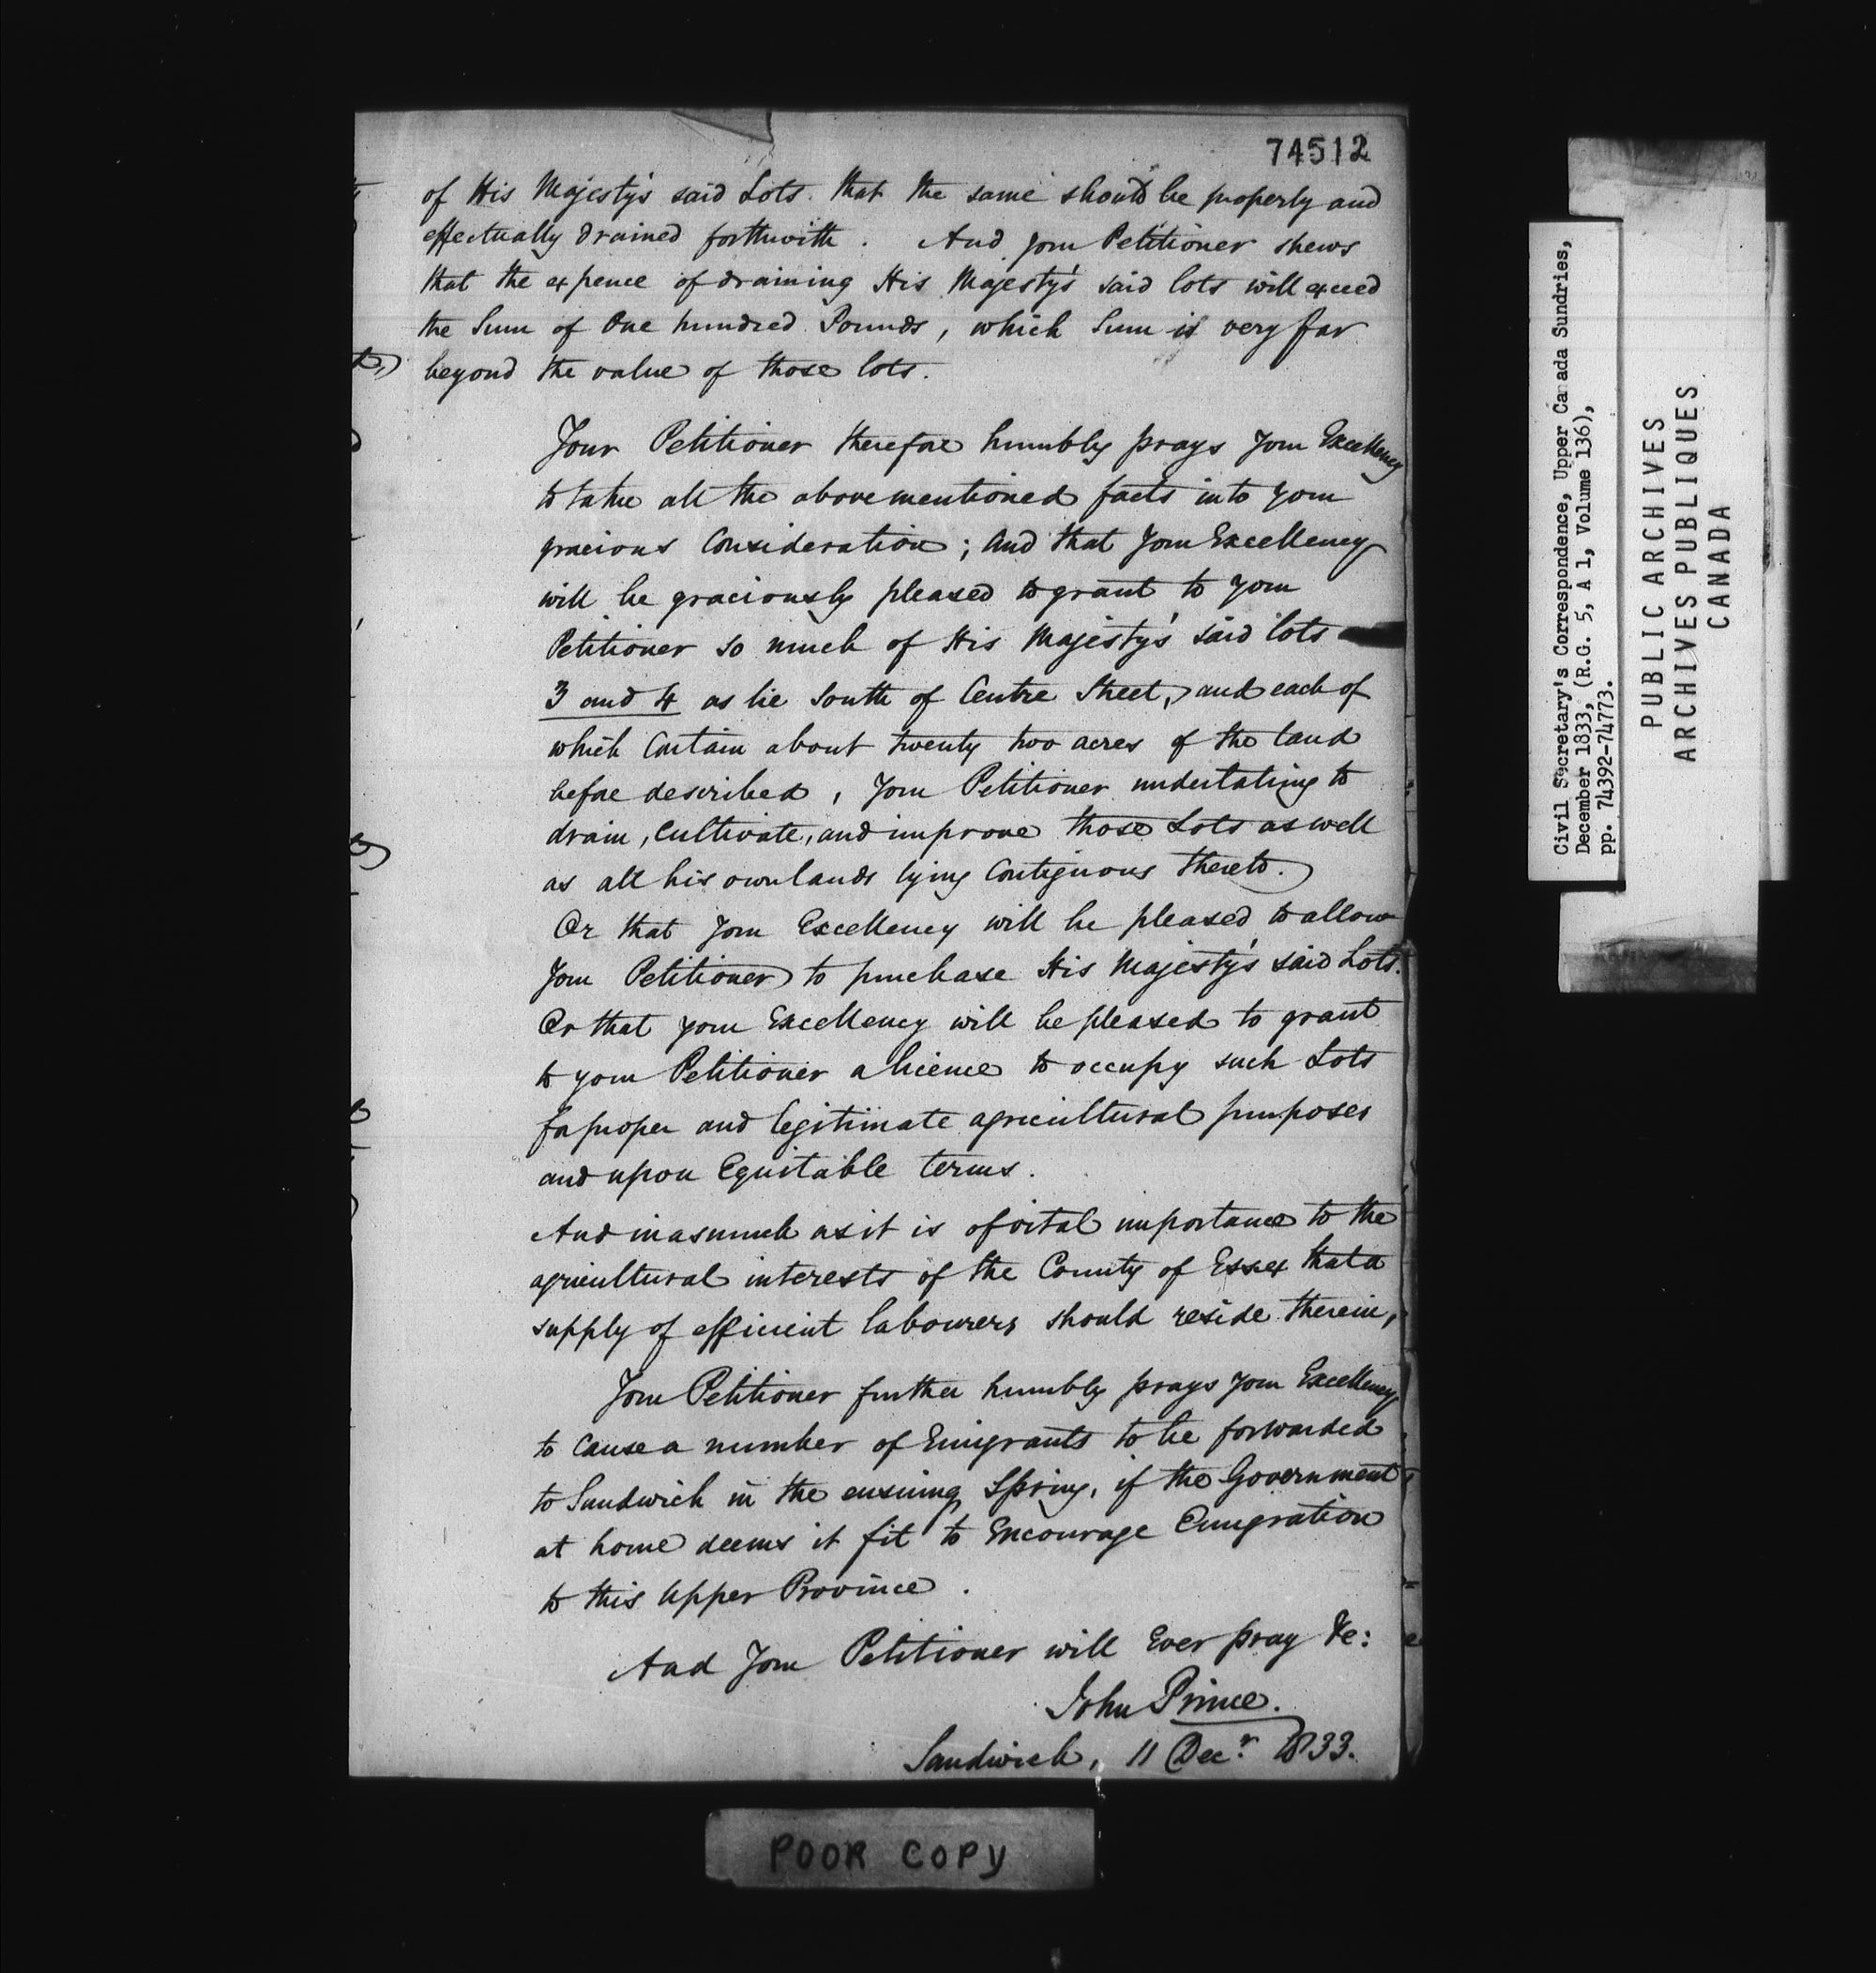 74512
of His Majesty's said Lots that the same should be properly and
effectually drained forthwith. And your Petitioner shews
that the expence of draining His Majesty's said lots will exceed
the Sum of One hundred Pounds, which Sum is very far
beyond the value of those lots.
Your Petitioner therefore humbly prays Your Excellency
to take all the abovementioned facts into your
gracious Consideration; and that Your Excellency
will be graciously pleased to grant to Your
Petitioner so much of His Majesty's said lots
3 and 4 as lie South of Centre Street, and each of
which Contain about twenty two acres of the land
before described, Your Petitioner undertaking to
drain, Cultivate, and improve those Lots as well
as all his own lands lying Contiguous thereto.
Or that Your Excellency will be pleased to allow
Your Petitioner to purchase His Majesty's said Lots.
Or that your Excellency will be pleased to grant
to your Petitioner a licence to occupy such Lots
for proper and legitimate agricultural purposes
and upon Equitable terms.
And inasmuch as it is of vital importance to the
agricultural interests of the County of Essex that a
supply of efficient labourers should reside therein,
Your Petitioner further humbly prays Your Excellency
to cause a number of Emigrants to be forwarded
to Sandwich in the ensuing Spring, if the Government
at home deems it fit to Encourage Emigration
to this Upper Province.
And Your Petitioner will Ever pray &c:
John Prince.
Sandwich, 11 Decr. 1833.
POOR COPY
Civil Secretary's Correspondence, Upper Canada Sundries,
December 1833, (R.G. 5, A 1, Volume 136),
pp. 74392-74773.
PUBLIC ARCHIVES
ARCHIVES PUBLIQUES
CANADA